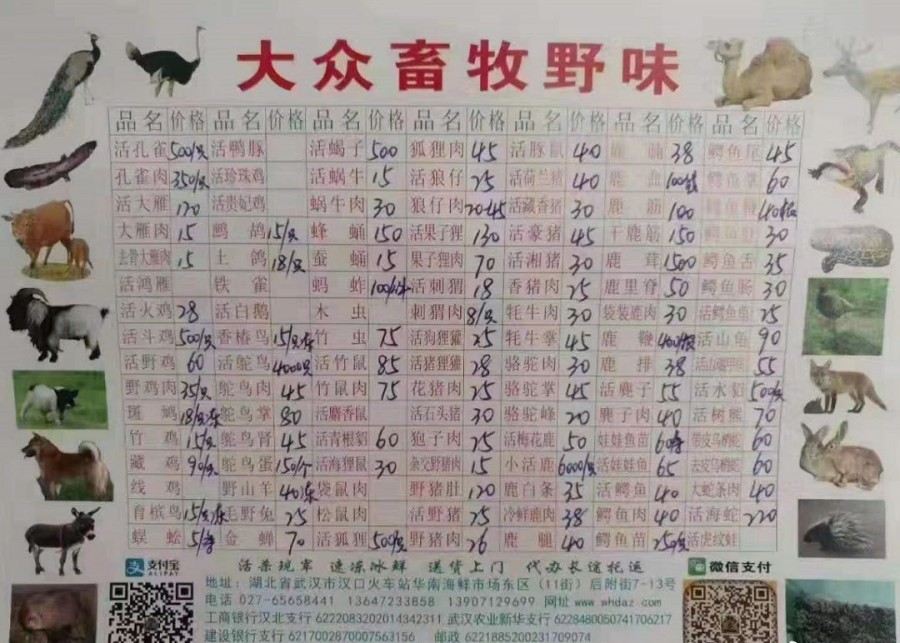 大众畜牧野味
品名 价格 品名 价格 品名 价格 品名 价格 品名 价格 品名 价格 品名 价格
活孔雀 500/只 活鸭豚 活蝎子 500 狐狸肉 45 活豚鼠 40 鹿 38 鳄鱼尾 45
孔雀肉 350/只 活珍珠鸡 活蜗牛 15 活狼仔 25 活荷兰猪 40 鹿 鳄鱼掌 60
活大雁 120 活贵妃鸡 蜗牛肉 30 狼仔肉 20-45 活藏香猪 30 鹿筋 100 鳄鱼
大雁肉 15 鹧鸪 15/只 蜂蛹 150 活果子狸 130 活豪猪 45 干鹿筋 150 鳄鱼 30
去骨大雁肉 15 土鸽 18/只 蚕蛹 15 果子狸肉 70 活湘猪 30 鹿茸 1500 鳄鱼舌 35
活鸿雁 铁雀 蚂蚱 活刺猬 18 香猪肉 25 鹿里脊 50 鳄鱼肠 30
活火鸡 28 活白鹅 木虫 刺猬肉 8/只 牦牛肉 30 袋装鹿肉 30 活鳄鱼龟 25
活斗鸡 500/只 香椿鸟 竹虫 75 活狗狸獾 25 牦牛掌 45 鹿鞭 活山龟 90
活野鸡 60 活鸵鸟 4000只 活竹鼠 85 活猪狸獾 28 骆驼肉 30 鹿排 38 55
野鸡肉 35/只 鸵鸟肉 45 竹鼠肉 75 花猪肉 25 骆驼掌 45 活麂子 55 活水貂 500/只
斑鸠 鸵鸟掌 80 活麝香鼠 活石头猪 30 骆驼峰 20 麂子肉 40 活树熊 70
竹鸡 15/只 鸵鸟肾 45 活青根貂 60 狍子肉 25 活梅花鹿 50 娃娃鱼苗 带皮乌梢蛇 60
藏鸡 90/只 鸵鸟蛋 150/个 活海狸鼠 30 杂交野猪肉 15 小活鹿 6000/只 活娃娃鱼 65 去皮乌梢蛇 60
线鸡 野山羊 40冻 袋鼠肉 野猪肚 120 鹿白条 35 活鳄鱼 40 大蛇条肉 40
育槟鸟 毛野兔 25 松鼠肉 活野猪 25 冷鲜鹿肉 38 鳄鱼肉 40 活海蛇 220
蜈蚣 金蝉 70 活狐狸 500/只 野猪肉 26 鹿腿 40 鳄鱼苗 活虎纹蛙
支付宝 ALIPAY
活杀现宰 速冻冰鲜 送货上门 代办长途托运
微信支付
地址：湖北省武汉市汉口火车站华南海鲜市场东区（11街）后附街7-13号
电话 027-65658441 13647233858 13907129699 网址 www.whdaz.com
工商银行汉北支行 6222083202014342311 武汉农业新华支行 6228480050741706217
建设银行支行 6217002870007563156 邮政 6221885200231709074